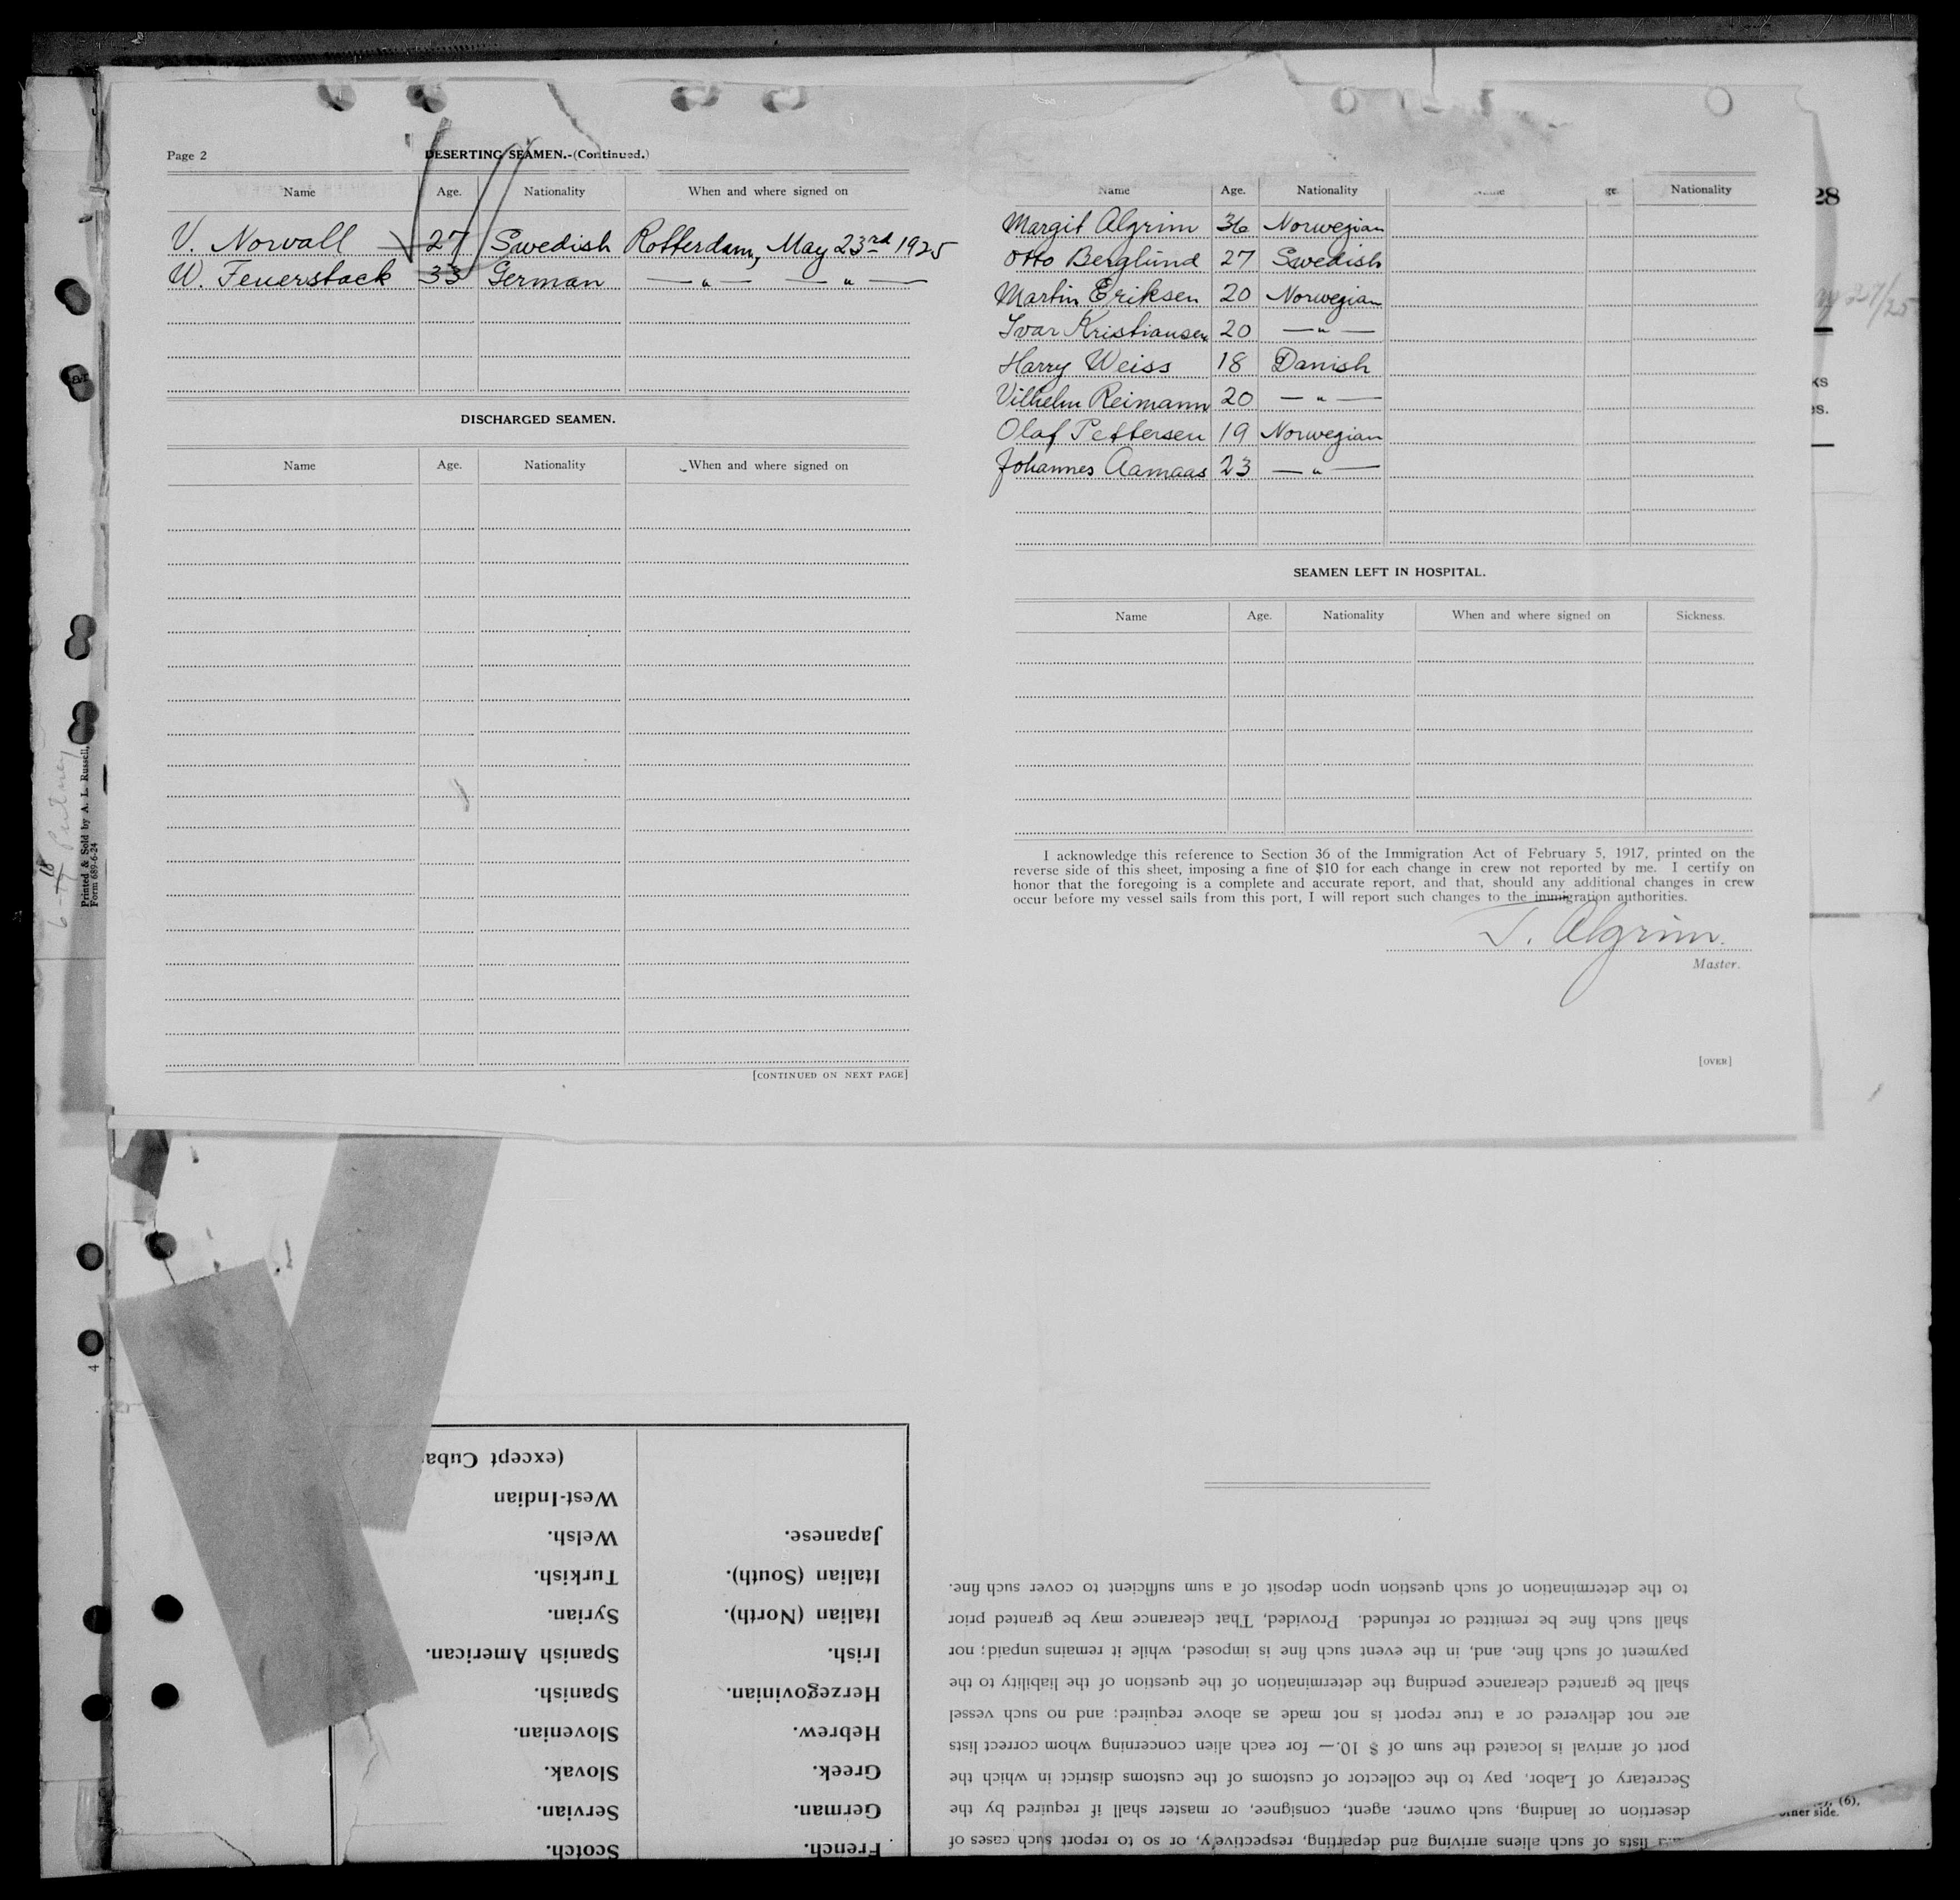 Page 2
DESERTING SEAMEN.-(Continued.)
Name Age. Nationality When and where signed on
V. Norvall 27 Swedish Rotterdam, May 23rd 1925
W. Feuerstack 33 German — " — — " —
DISCHARGED SEAMEN.
Name Age. Nationality When and where signed on
[CONTINUED ON NEXT PAGE]
Name Age. Nationality Nationality
Margit Algrim 36 Norwegian
Otto Berglund 27 Swedish
Martin Eriksen 20 Norwegian
Ivar Kristiansen 20 — " —
Harry Weiss 18 Danish
Vilhelm Reimann 20 — " —
Olaf Pettersen 19 Norwegian
Johannes Aamaas 23 — " —
SEAMEN LEFT IN HOSPITAL.
Name Age. Nationality When and where signed on Sickness.
I acknowledge this reference to Section 36 of the Immigration Act of February 5, 1917, printed on the
reverse side of this sheet, imposing a fine of $10 for each change in crew not reported by me. I certify on
honor that the foregoing is a complete and accurate report, and that, should any additional changes in crew
occur before my vessel sails from this port, I will report such changes to the immigration authorities.
T. Algrim.
Master.
[OVER]
28
27/25
Printed & Sold by A. L. Russell,
Form 689-6-24
4
French.
German.
Greek.
Hebrew.
Herzegovinian.
Irish.
Italian (North).
Italian (South).
Japanese.
Scotch.
Servian.
Slovak.
Slovenian.
Spanish.
Spanish American.
Syrian.
Turkish.
Welsh.
West-Indian
(except Cuba
lists of such aliens arriving and departing, respectively, or so to report such cases of
desertion or landing, such owner, agent, consignee, or master shall if required by the
Secretary of Labor, pay to the collector of customs of the customs district in which the
port of arrival is located the sum of $ 10.— for each alien concerning whom correct lists
are not delivered or a true report is not made as above required; and no such vessel
shall be granted clearance pending the determination of the question of the liability to the
payment of such fine, and, in the event such fine is imposed, while it remains unpaid; nor
shall such fine be remitted or refunded. Provided, That clearance may be granted prior
to the determination of such question upon deposit of a sum sufficient to cover such fine.
(6),
side.